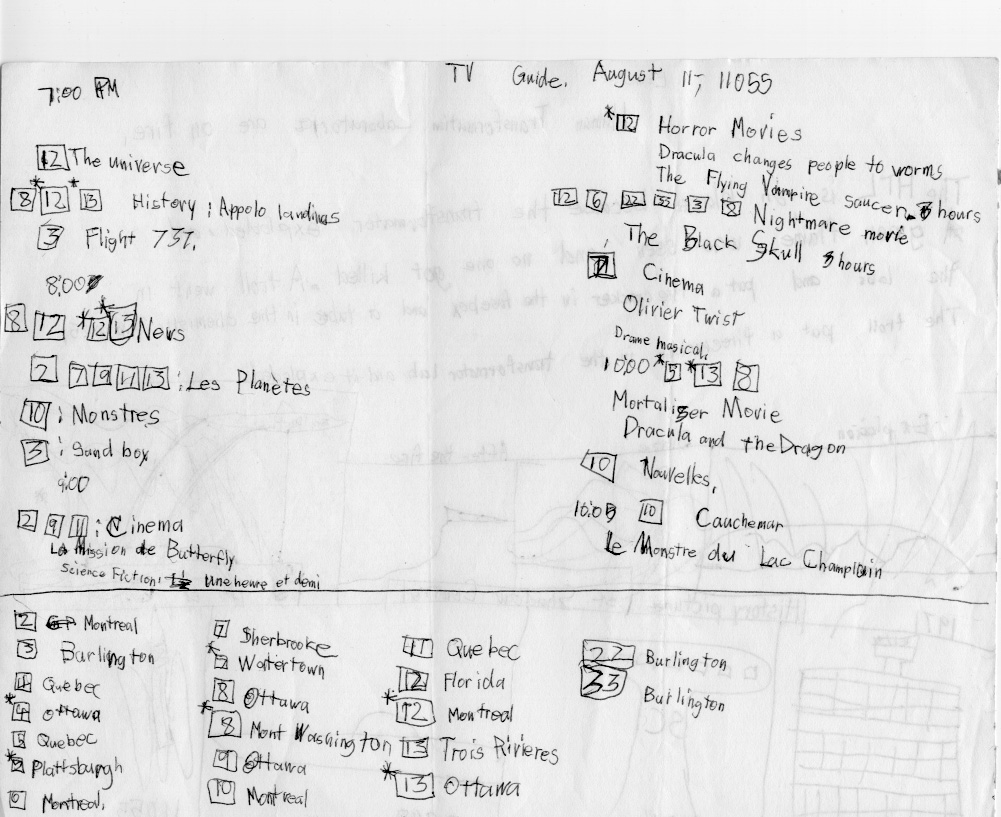 TV Guide, August 11, 11055
7:00 PM
12 The universe
8 *12 *13 History : Appolo landings
3 Flight 737,
8:00
8 12 *12 13 News
2 7 9 11 13 : Les Planètes
10 : Monstres
3 : Sand box
9:00
2 9 11 : Cinema
La Mission de Butterfly
Science Fiction: une heure et demi
*12 Horror Movies
Dracula changes people to worms
The Flying Vampire saucer. 3 hours
12 6 22 33 3 8 Nightmare movie
The Black Skull 3 hours
7 Cinema
Olivier Twist
Drame masical,
10:00 *5 *13 8
Mortaliser Movie
Dracula and the Dragon
10 Nouvelles,
10:05 10 Cauchemar
Le Monstre du Lac Champlain
2 Montreal
3 Burlington
4 Quebec
*4 Ottawa
5 Quebec
*5 Plattsburgh
6 Montreal,
7 Sherbrooke
* Watertown
8 Ottawa
*8 Mont Washington
9 Ottawa
10 Montreal
11 Quebec
12 Florida
*12 Montreal
13 Trois Rivieres
*13 Ottawa
22 Burlington
33 Burlington